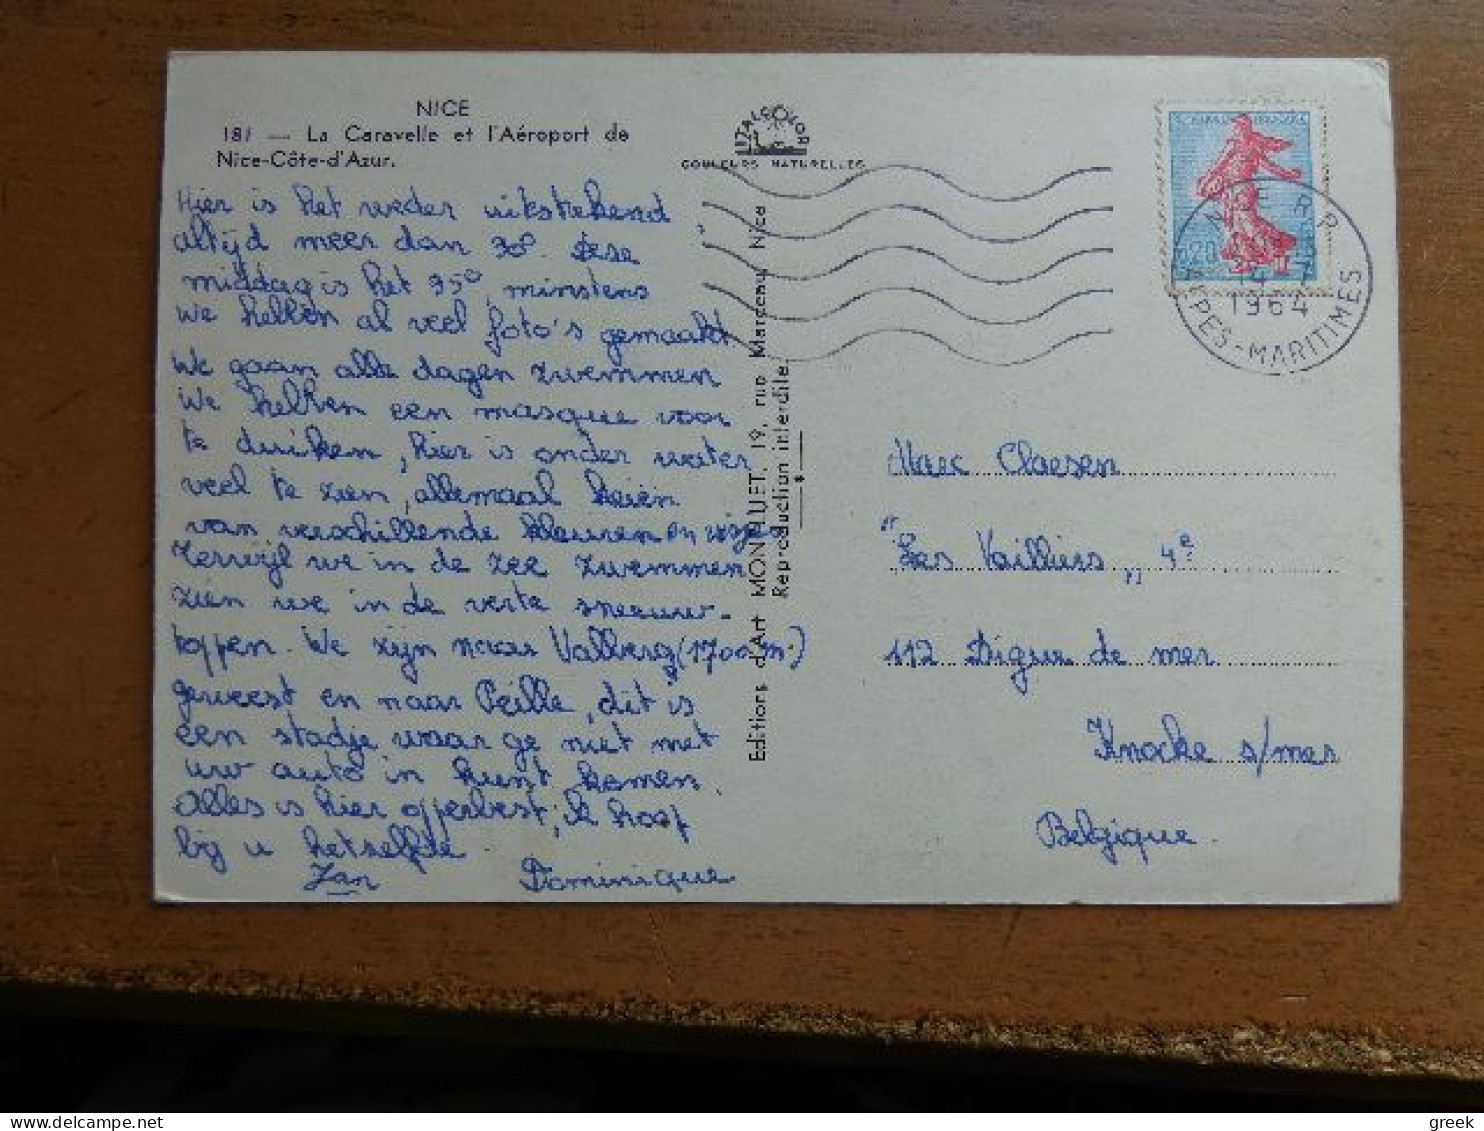 NICE
181 — La Caravelle et l'Aéroport de
Nice-Côte-d'Azur.
ITALCOLOR
COULEURS NATURELLES
Hier is het weder uitstekend,
altijd meer dan 30°. Deze
middag is het 35° minstens
We hebben al veel foto's gemaakt
We gaan alle dagen zwemmen
We hebben een masque voor
te duiken, hier is onder water
veel te zien, allemaal keien
van verschillende kleuren en
Terwijl we in de zee zwemmen
zien we in de verte sneeuw-
toppen. We zijn naar Valberg (1700 m.)
geweest en naar Peille, dit is
een stadje waar ge niet met
uw auto in kunt komen.
Alles is hier opperbest, ik hoop
bij u hetzelfde.
Jan Dominique
Editions d'Art MONTLUET, 19, rue Marceau, Nice
Reproduction interdite.
NICE R.P.
1964
ALPES-MARITIMES
0,20
Marc Claesen
"Les Voilliers„ 4e
112 Digue de mer
Knocke s/mer
Belgique.
delcampe.net
greek